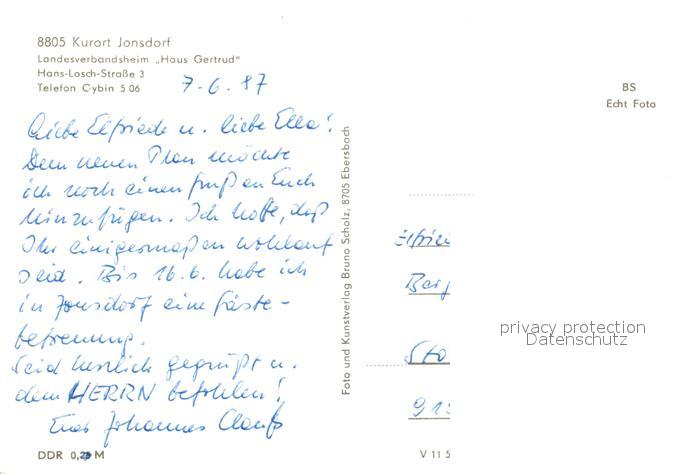 8805 Kurort Jonsdorf
Landesverbandsheim „Haus Gertrud"
Hans-Losch-Straße 3
Telefon Cybin 5 06
7.6.87
Liebe Elfriede u. liebe Ella!
Dem neuen Plan möchte
ich noch einen Gruß an Euch
hinzufügen. Ich hoffe, daß
Ihr einigermaßen wohlauf
seid. Bis 16.6. habe ich
in Jonsdorf eine Gäste-
betreuung.
Seid herzlich gegrüßt u.
dem HERRN befohlen!
Euer Johannes
DDR 0,25 M
Foto und Kunstverlag Bruno Scholz, 8705 Ebersbach
BS
Echt Foto
Elfrie
Berg
Sto
privacy protection
Datenschutz
V 11 5